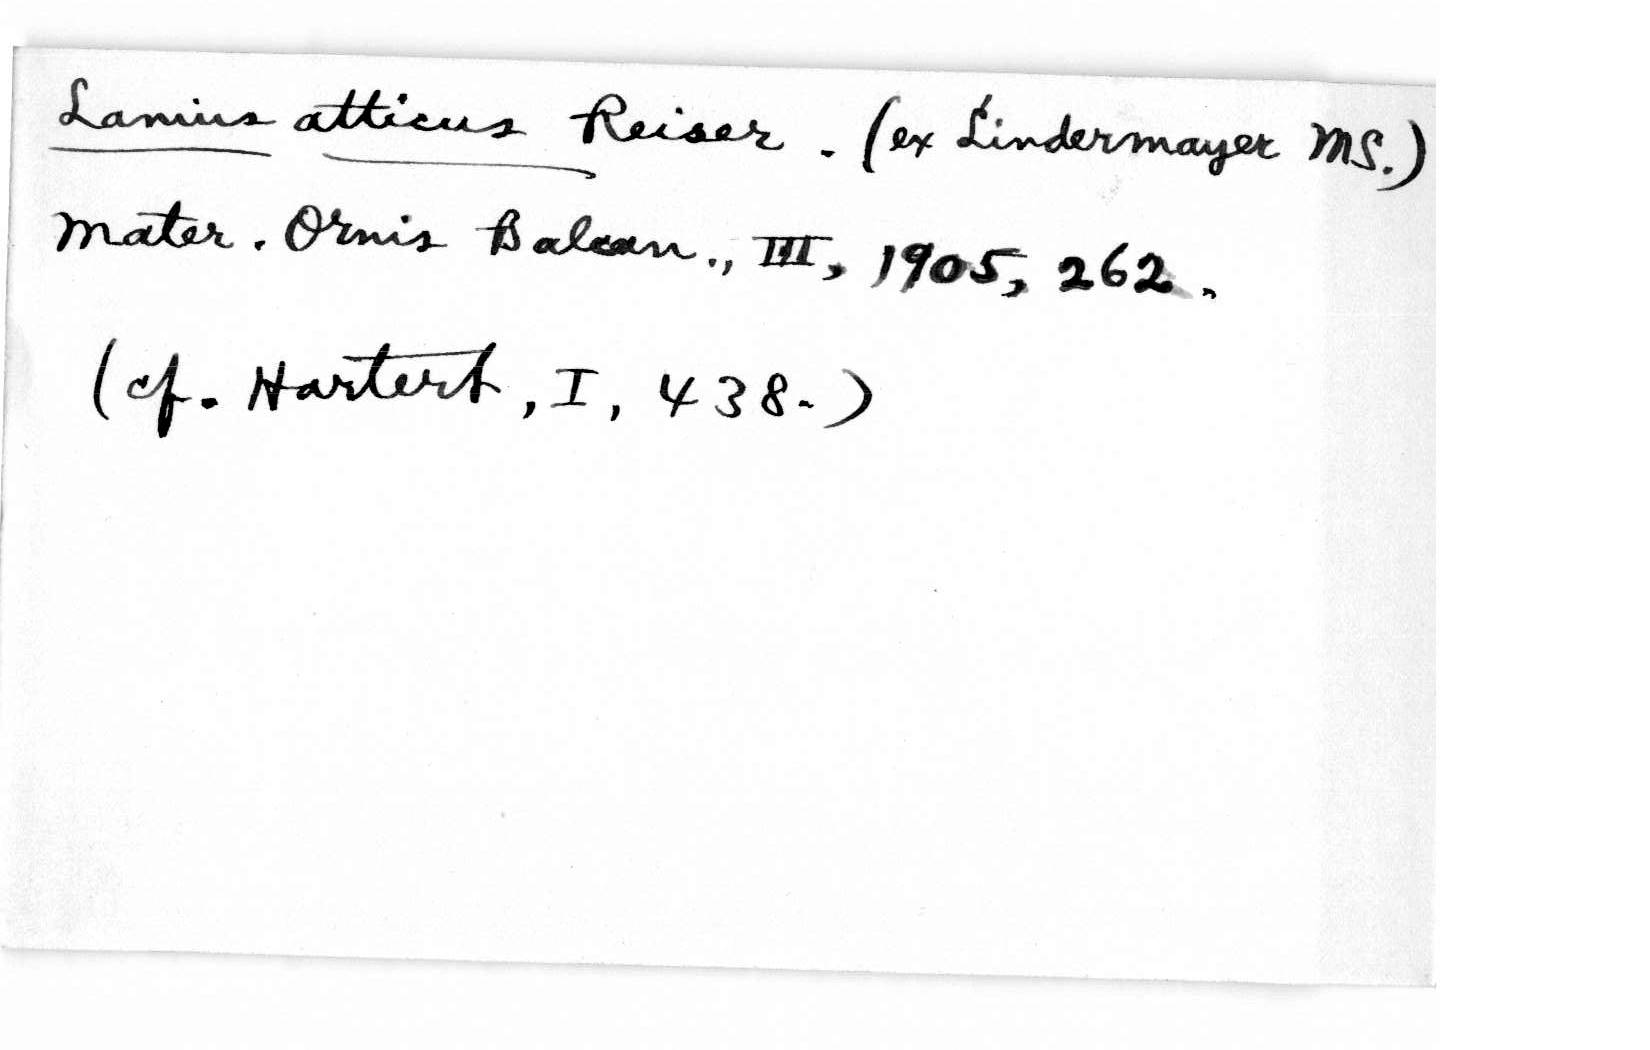 Lanius atticus Reiser. (ex Lindermayer MS.)
Mater. Ornis Balcan., III, 1905, 262.
(cf. Hartert, I, 438.)